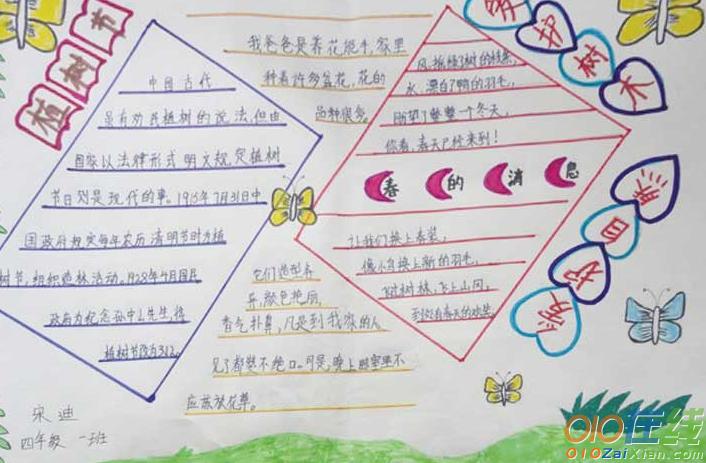 植树节
中国古代
虽有劝民植树的说法,但由
国家以法律形式明文规定植树
节日则是现代的事。1915年7月31日中
国政府规定每年农历清明节时为植
树节,组织造林活动。1928年4月国民
政府为纪念孙中山先生,将
植树节改为3.12。
我爸爸是养花能手,家里
种着许多盆花,花的
品种很多。
它们造型各
异,颜色艳丽,
香气扑鼻,凡是到我家的人
见了都赞不绝口。可是,晚上卧室里不
应该放花草。
风,摇绿了树的枝条,
水,漂白了鸭的羽毛,
盼望了整整一个冬天,
你看,春天已经来到!
春的消息
让我们换上春装,
像小鸟换上新的羽毛,
飞过树林,飞上山冈,
到处有春天的欢笑。
爱护树木
爱护自然
宋迪
四年级 一班
010在线
010ZaiXian.com